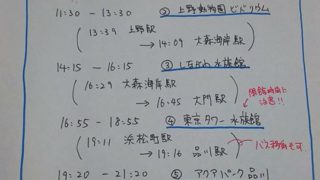 11:30 - 13:30 ② 上野動物園 ビバリウム
(13:39 上野駅
→ 14:09 大森海岸駅)
14:15 - 16:15 ③ しながわ水族館
(16:29 大森海岸駅
→ 16:45 大門駅)
閉館時間に
注意!!
16:55 - 18:55 ④ 東京タワー水族館
(19:11 浜松町駅
→ 19:16 品川駅)
バス移動も可
19:20 - 21:20 ⑤ アクアパーク品川